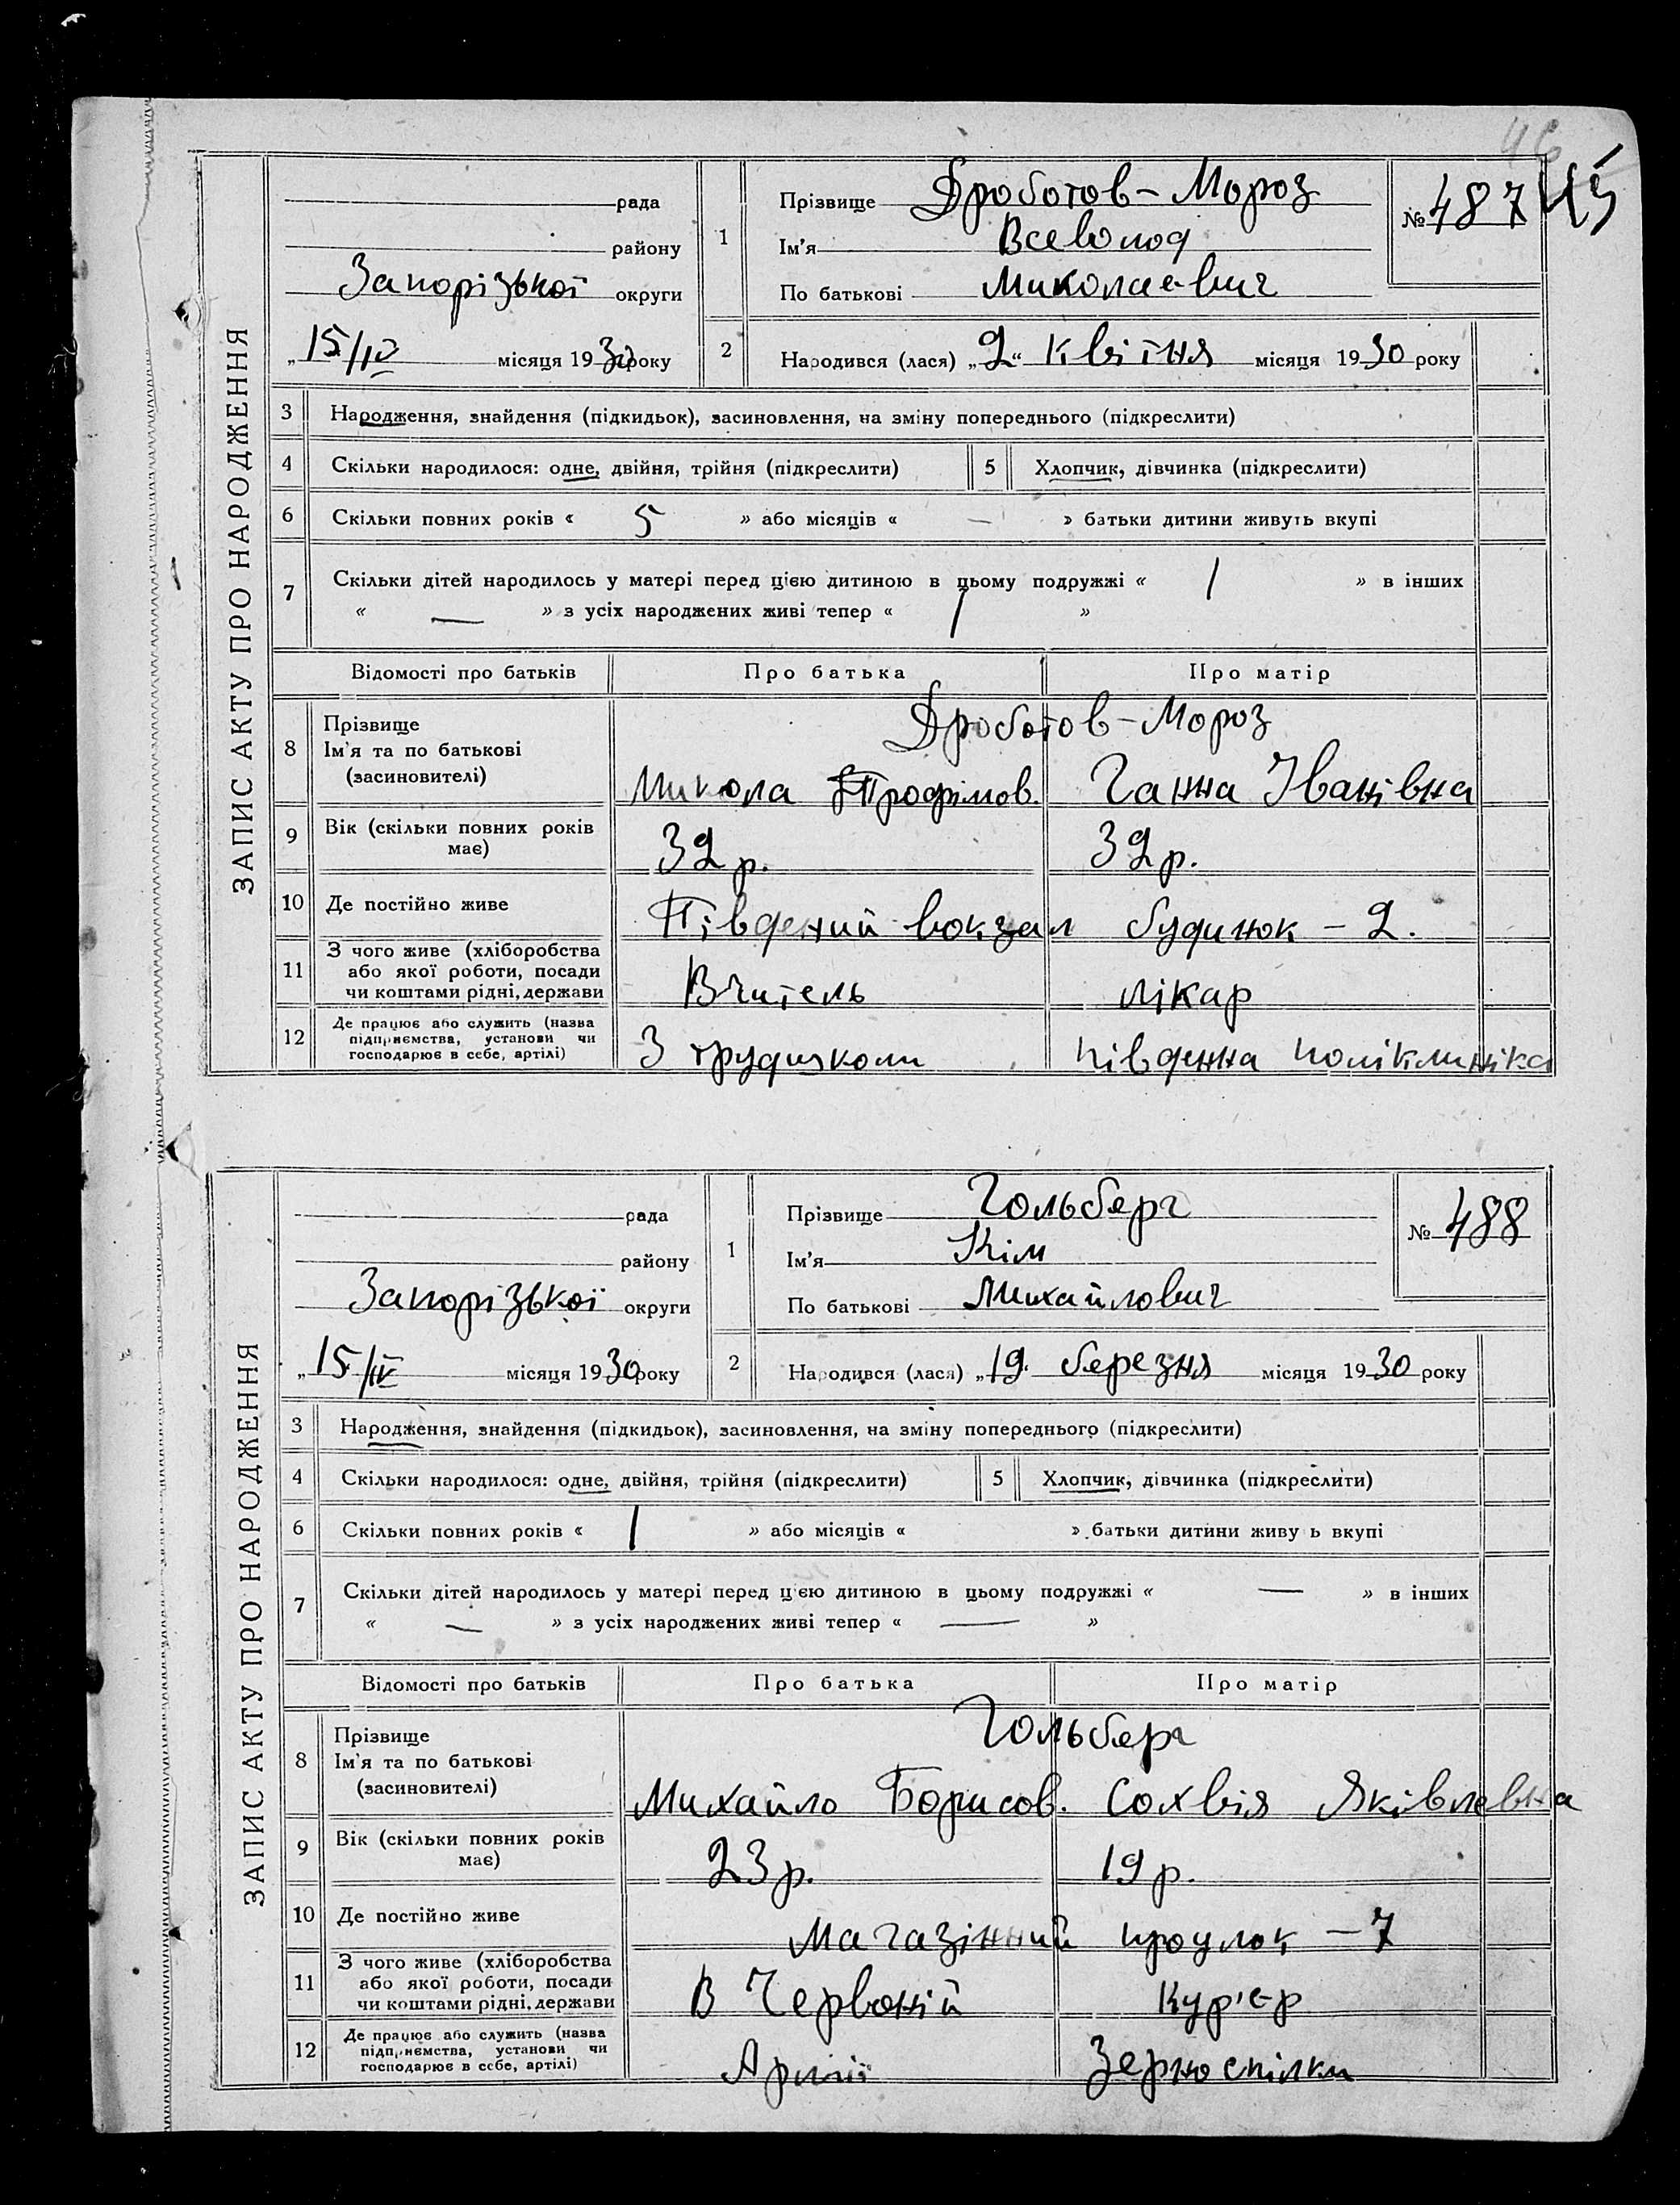 46
45
ЗАПИС АКТУ ПРО НАРОДЖЕННЯ
рада
району
Запорізької округи
„15/IV місяця 1930 року
1
Прізвище Дроботов-Мороз
Ім'я Всеволод
По батькові Миколаєвич
№ 487
2
Народився (лася) „2“ квітня місяця 1930 року
3 Народження, знайдення (підкидьок), засиновлення, на зміну попереднього (підкреслити)
4 Скільки народилося: одне, двійня, трійня (підкреслити) 5 Хлопчик, дівчинка (підкреслити)
6 Скільки повних років « 5 » або місяців « — » батьки дитини живуть вкупі
7 Скільки дітей народилось у матері перед цією дитиною в цьому подружжі « 1 » в інших
« — » з усіх народжених живі тепер « 1 »
Відомості про батьків Про батька Про матір
8 Прізвище
Ім'я та по батькові
(засиновителі)
Дроботов-Мороз
Микола Трофімов. Ганна Іванівна
9 Вік (скільки повних років
має)
32 р. 32 р.
10 Де постійно живе Південий вокзал будинок - 2.
11 З чого живе (хліборобства
або якої роботи, посади
чи коштами рідні, держави
Вчитель лікар
12 Де працює або служить (назва
підприємства, установи чи
господарює в себе, артілі)
3 трудшколи Південна поліклиніка
ЗАПИС АКТУ ПРО НАРОДЖЕННЯ
рада
району
Запорізької округи
„15/IV місяця 1930 року
1
Прізвище Гольберг
Ім'я Кім
По батькові Михайлович
№ 488
2
Народився (лася) „19. березня місяця 1930 року
3 Народження, знайдення (підкидьок), засиновлення, на зміну попереднього (підкреслити)
4 Скільки народилося: одне, двійня, трійня (підкреслити) 5 Хлопчик, дівчинка (підкреслити)
6 Скільки повних років « 1 » або місяців « » батьки дитини живу ь вкупі
7 Скільки дітей народилось у матері перед цією дитиною в цьому подружжі « — » в інших
« — » з усіх народжених живі тепер « — »
Відомості про батьків Про батька Про матір
8 Прізвище
Ім'я та по батькові
(засиновителі)
Гольберг
Михайло Борисов. Сохвія Яківлевна
9 Вік (скільки повних років
має)
23 р. 19 р.
10 Де постійно живе Магазінний проулок - 7
11 З чого живе (хліборобства
або якої роботи, посади
чи коштами рідні, держави
В Червоній Кур'єр
12 Де працює або служить (назва
підприємства, установи чи
господарює в себе, артілі)
Армії Зерноспілки